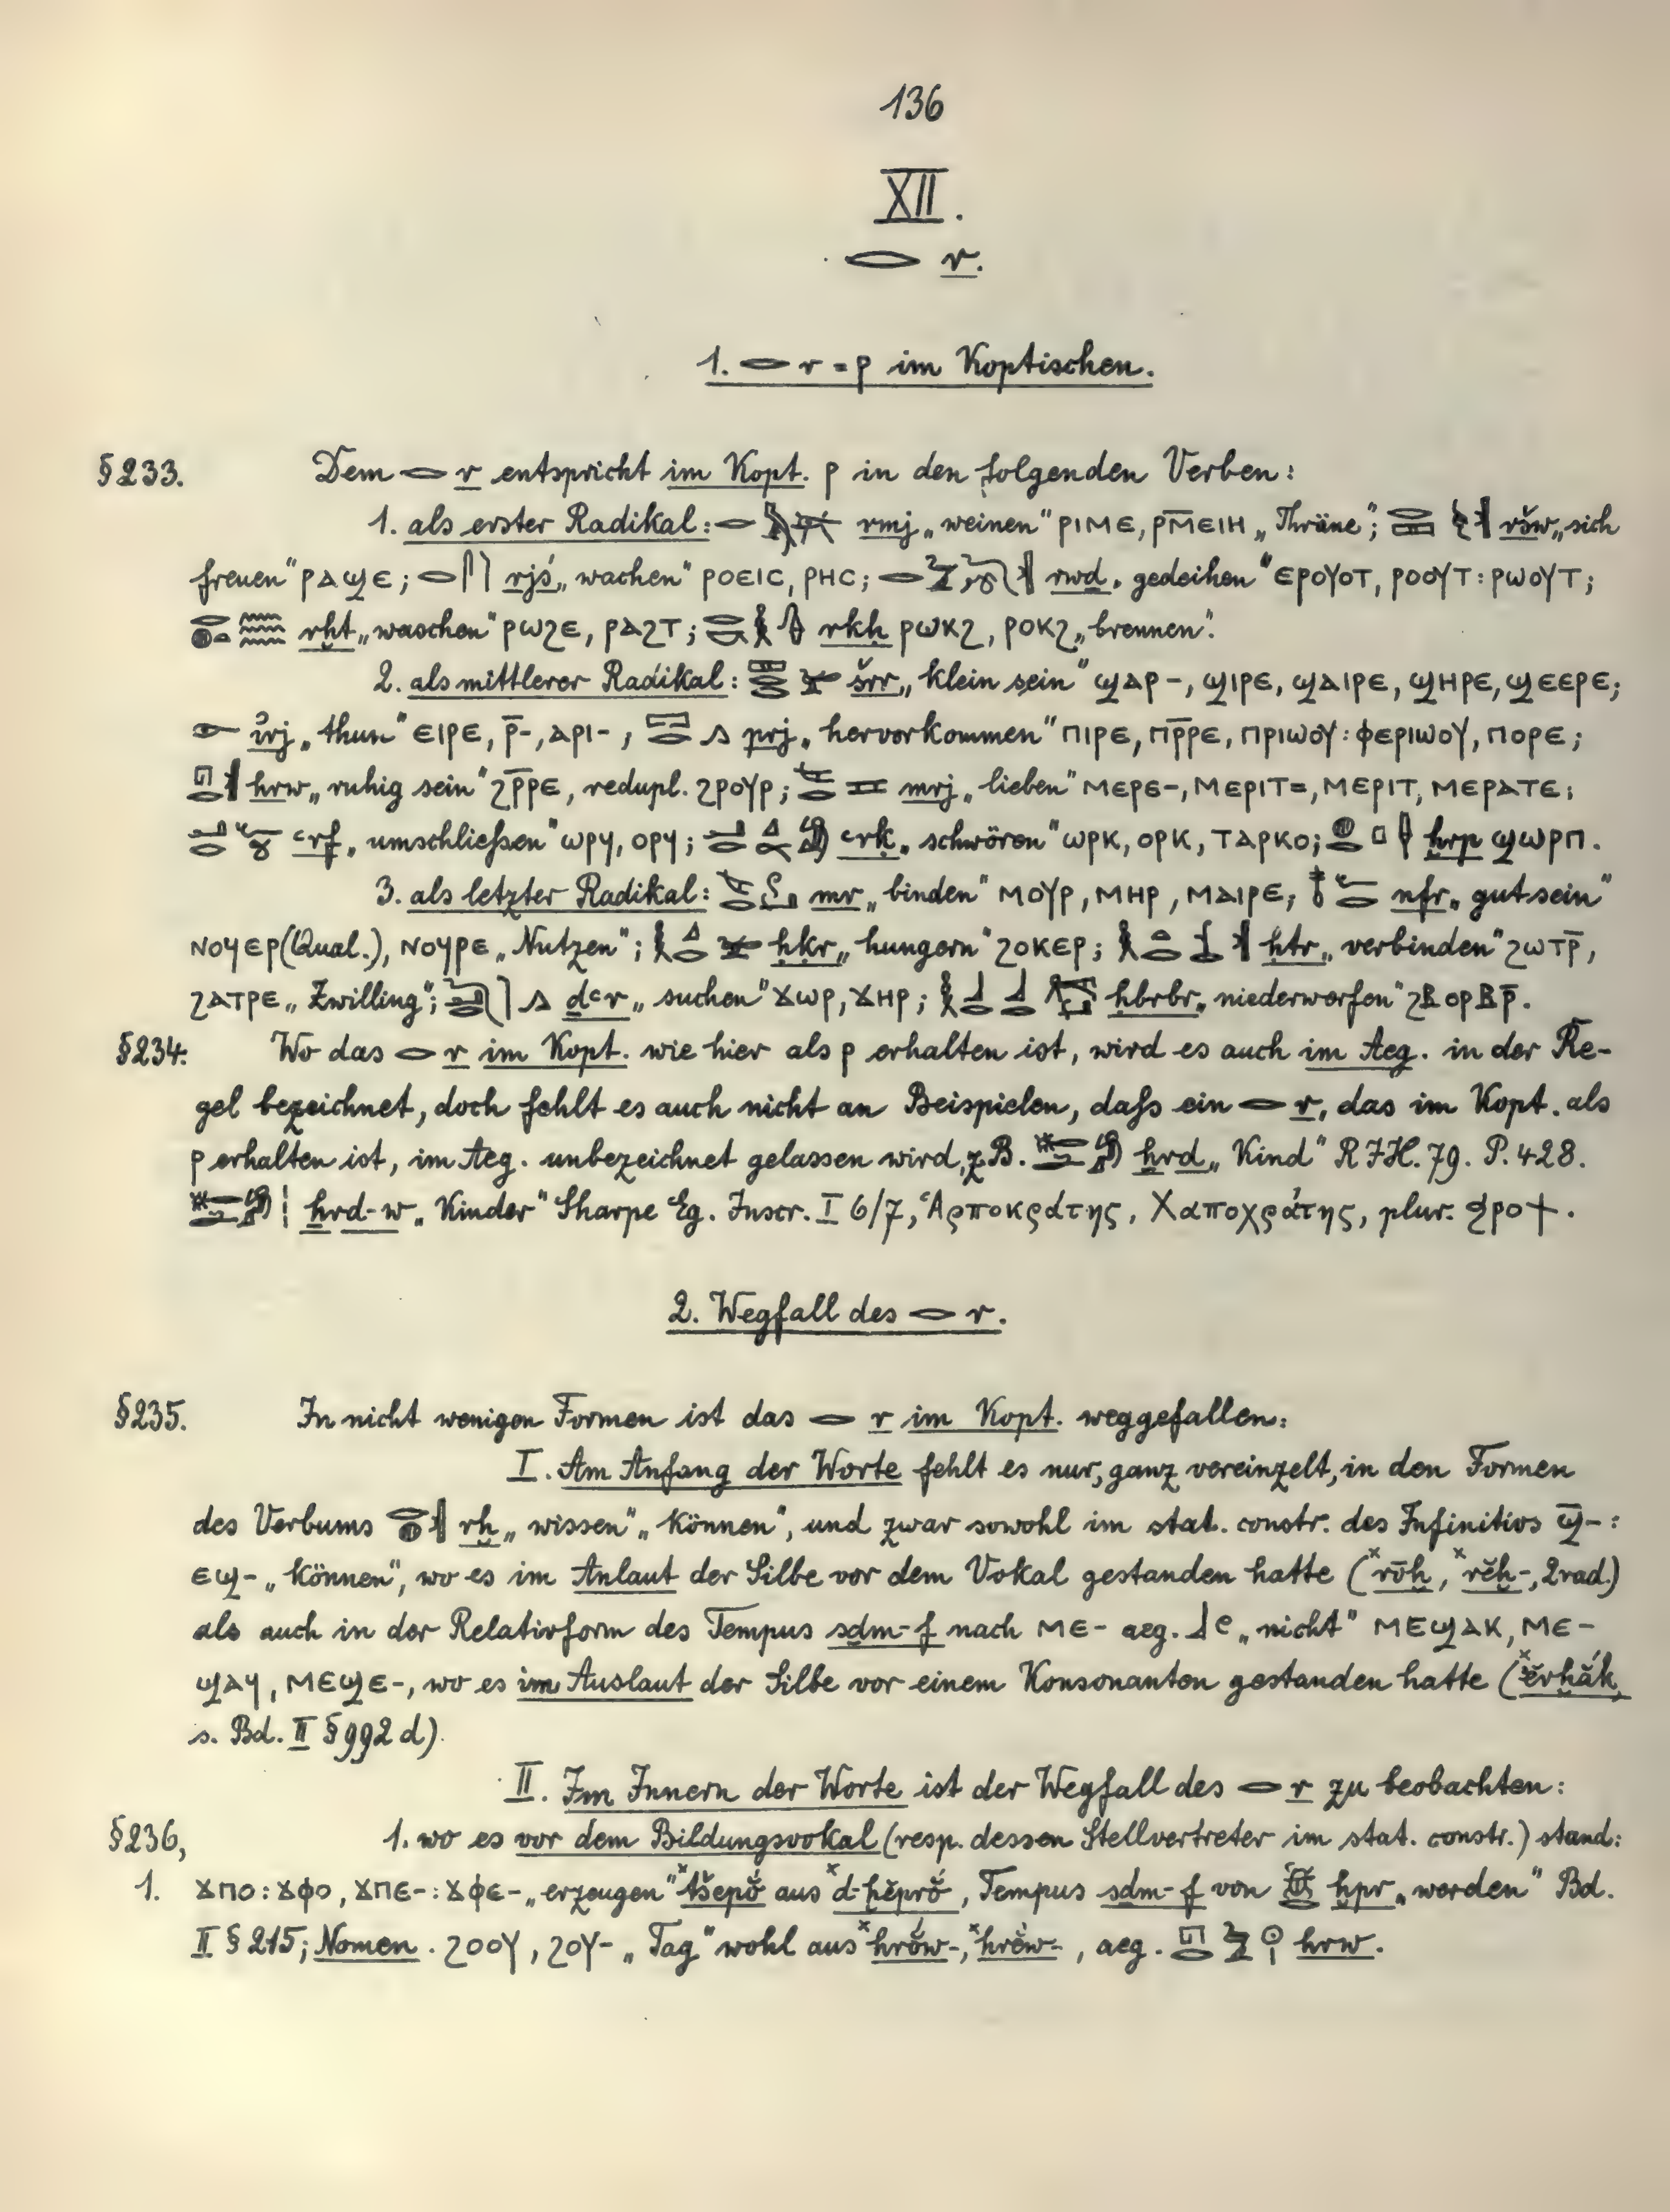 136
XII.
𓂋 r.
1. 𓂋 r = ⲣ im Koptischen.
§233. Dem 𓂋 r entspricht im Kopt. ⲣ in den folgenden Verben:
1. als erster Radikal: 𓂋 rmj „weinen“ ⲣⲓⲙⲉ, ⲣⲙ̅ⲉⲓⲏ „Thräne“; ršw „sich
freuen“ ⲣⲁϣⲉ; rjś „wachen“ ⲣⲟⲉⲓⲥ, ⲣⲏⲥ; rwd „gedeihen“ ⲉⲣⲟⲩⲟⲧ, ⲣⲟⲟⲩⲧ : ⲣⲱⲟⲩⲧ;
rḫt „waschen“ ⲣⲱϩⲉ, ⲣⲁϩⲧ; rkḥ ⲣⲱⲕϩ, ⲣⲟⲕϩ „brennen“.
2. als mittlerer Radikal: šrr „klein sein“ ϣⲁⲣ-, ϣⲓⲣⲉ, ϣⲁⲓⲣⲉ, ϣⲏⲣⲉ, ϣⲉⲉⲣⲉ;
𓁹 ỉrj „thun“ ⲉⲓⲣⲉ, ⲣ̅-, ⲁⲣⲓ-, 𓉐𓂋𓂻 prj „hervorkommen“ ⲡⲓⲣⲉ, ⲡⲣ̅ⲣⲉ, ⲡⲣⲓⲱⲟⲩ : ⲫⲉⲣⲓⲱⲟⲩ, ⲡⲟⲣⲉ;
hrw „ruhig sein“ ϩⲣ̅ⲣⲉ, redupl. ϩⲣⲟⲩⲣ; mrj „lieben“ ⲙⲉⲣⲉ-, ⲙⲉⲣⲓⲧ=, ⲙⲉⲣⲓⲧ, ⲙⲉⲣⲁⲧⲉ;
ꜥrf „umschließen“ ⲱⲣϥ, ⲟⲣϥ; ꜥrḳ „schwören“ ⲱⲣⲕ, ⲟⲣⲕ, ⲧⲁⲣⲕⲟ; ḫrp ϣⲱⲣⲡ.
3. als letzter Radikal: mr „binden“ ⲙⲟⲩⲣ, ⲙⲏⲣ, ⲙⲁⲓⲣⲉ; nfr „gut sein“
ⲛⲟϥⲉⲣ (Qual.), ⲛⲟϥⲣⲉ „Nutzen“; ḥḳr „hungern“ ϩⲟⲕⲉⲣ; ḥtr „verbinden“ ϩⲱⲧⲣ̅,
ϩⲁⲧⲣⲉ „Zwilling“; dꜥr „suchen“ ϫⲱⲣ, ϫⲏⲣ; ḥbrbr „niederwerfen“ ϩⲃⲟⲣⲃⲣ̅.
§234. Wo das 𓂋 r im Kopt. wie hier als ⲣ erhalten ist, wird es auch im Aeg. in der Re-
gel bezeichnet, doch fehlt es auch nicht an Beispielen, daß ein 𓂋 r, das im Kopt. als
ⲣ erhalten ist, im Aeg. unbezeichnet gelassen wird, z.B. ẖrd „Kind“ RIH. 79. P. 428.
ẖrd-w „Kinder“ Sharpe Eg. Inscr. I 6/7, Ἁρποκράτης, Χαποχράτης, plur. ϧⲣⲟϯ.
2. Wegfall des 𓂋 r.
§235. In nicht wenigen Formen ist das 𓂋 r im Kopt. weggefallen:
I. Am Anfang der Worte fehlt es nur, ganz vereinzelt, in den Formen
des Verbums rḫ „wissen“ „können“, und zwar sowohl im stat. constr. des Infinitivs ϣ̅- :
ⲉϣ- „können“, wo es im Anlaut der Silbe vor dem Vokal gestanden hatte (ˣrōḫ, ˣrĕḫ-, 2rad.)
als auch in der Relativform des Tempus sdm-f nach ⲙⲉ- aeg. „nicht“ ⲙⲉϣⲁⲕ, ⲙⲉ-
ϣⲁϥ, ⲙⲉϣⲉ-, wo es im Auslaut der Silbe vor einem Konsonanten gestanden hatte (ˣĕrḫắk,
s. Bd. II §992 d).
II. Im Innern der Worte ist der Wegfall des 𓂋 r zu beobachten:
§236, 1. wo es vor dem Bildungsvokal (resp. dessen Stellvertreter im stat. constr.) stand:
1. ϫⲡⲟ : ϫⲫⲟ, ϫⲡⲉ- : ϫⲫⲉ- „erzeugen“ ˣtšepŏ́ aus ˣd-ḫĕprŏ́, Tempus sdm-f von ḫpr „werden“ Bd.
II § 215; Nomen. ϩⲟⲟⲩ, ϩⲟⲩ- „Tag“ wohl aus ˣhrŏ́w-, ˣhrĕ́w-, aeg. hrw.